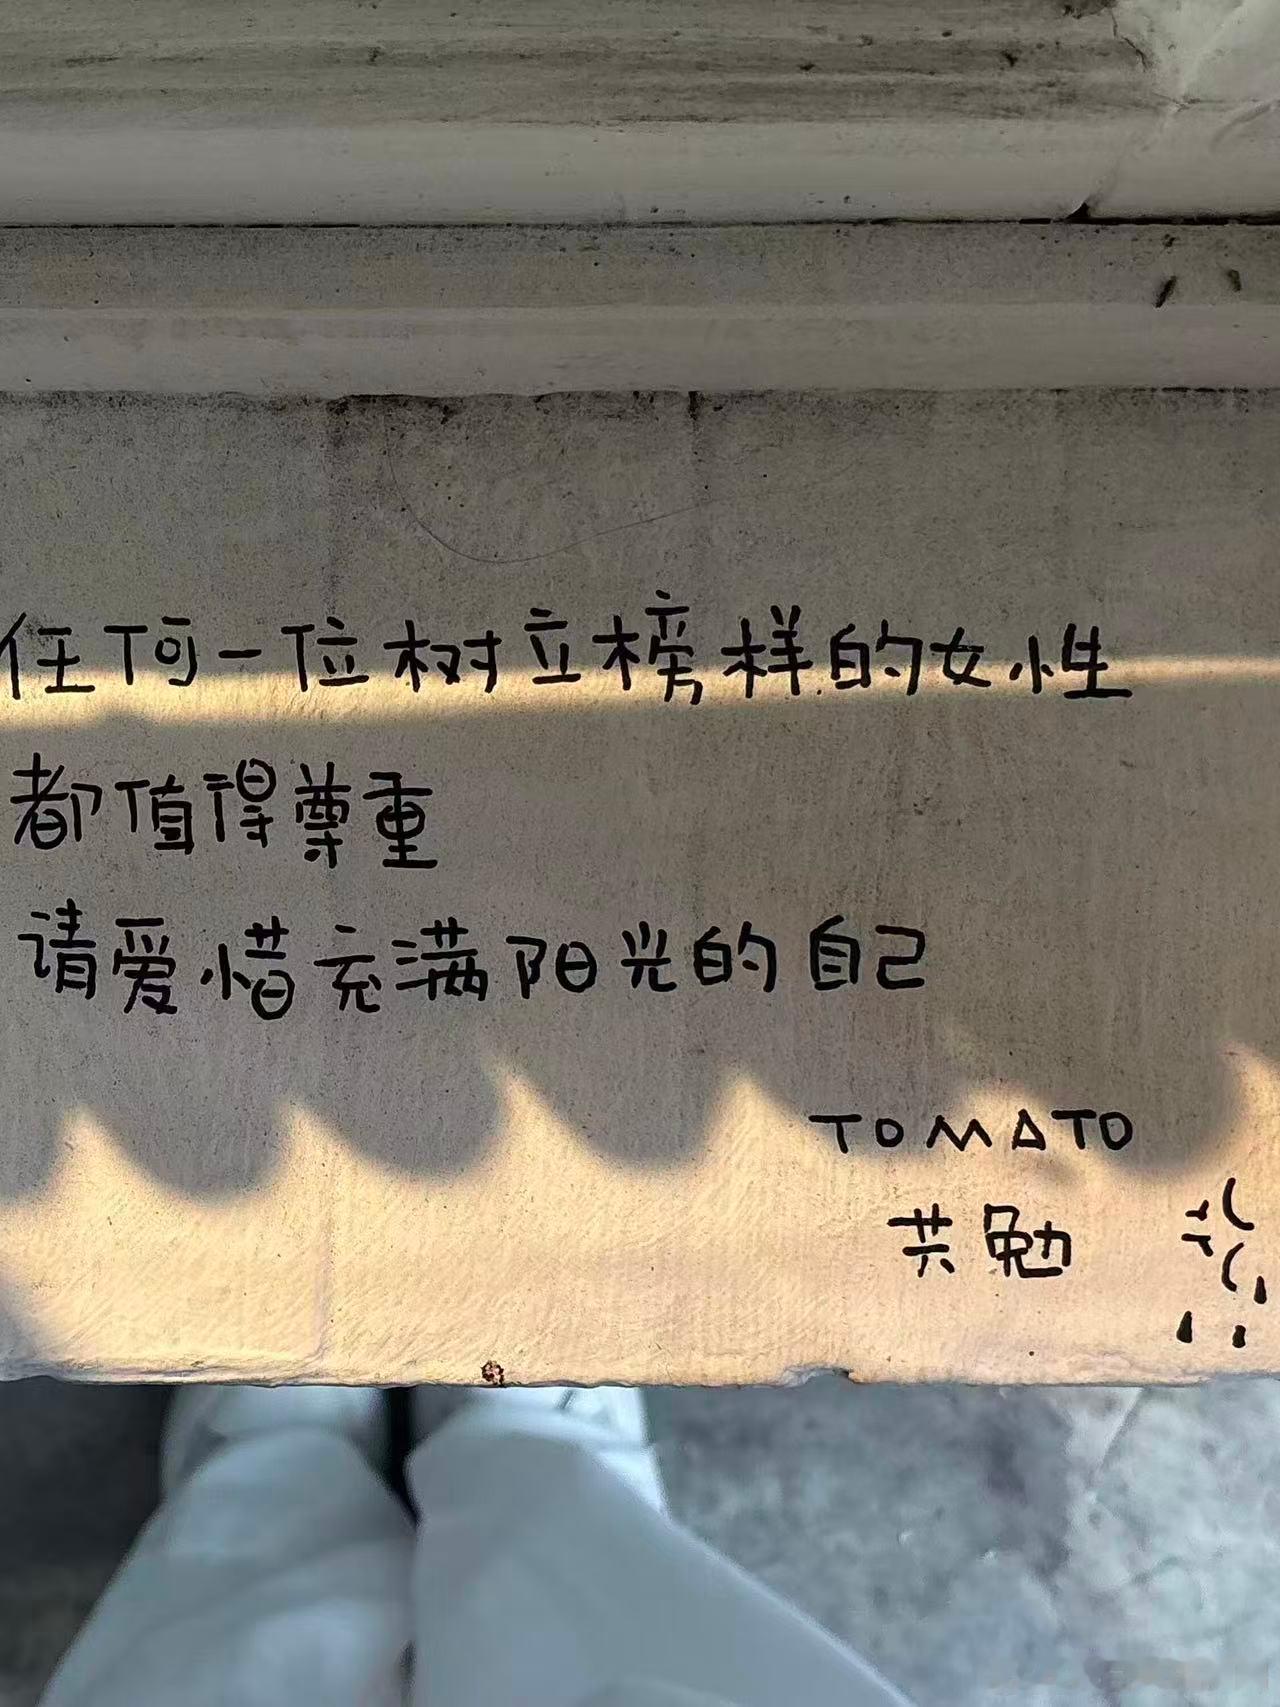 任何一位树立榜样的女性
都值得尊重
请爱惜充满阳光的自己
TOMATO
共勉